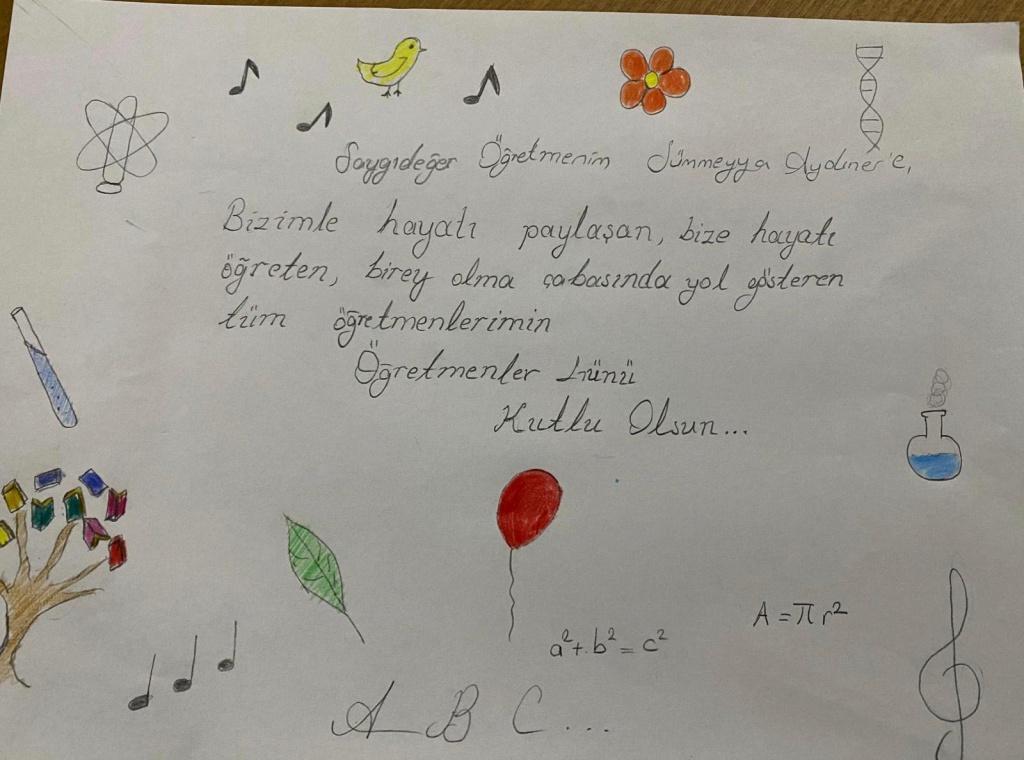 Saygıdeğer Öğretmenim Sümmeyya Aydıner'e,
Bizimle hayatı paylaşan, bize hayatı
öğreten, birey olma çabasında yol gösteren
tüm öğretmenlerimin
Öğretmenler Günü
Kutlu Olsun...
A = π r²
a² + b² = c²
A B C...